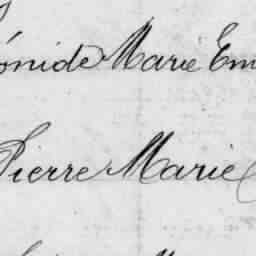 ónide Marie Em
Pierre Marie